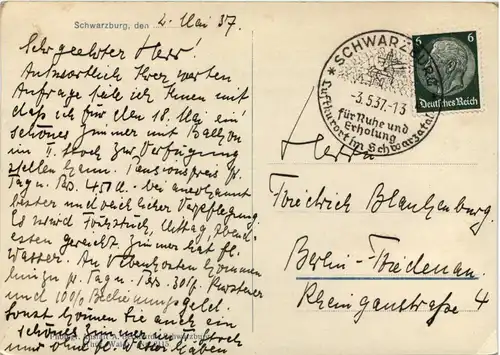 Schwarzburg, den 2. Mai 37.
Sehr geehrter Herr!
Antwortlich Ihrer werten
Anfrage teile ich Ihnen mit
daß ich für den 18. Mai ein
schönes Zimmer mit Balkon
im II. Stock zur Verfügung
stellen kann. Pensionspreis p.
Tag u. Pers. 4,50 M. bei anerkannt
bester und reichlicher Verpflegung.
Es wird Frühstück, Mittag, Abend-
essen gereicht. Zimmer hat fl.
Wasser. An Nebenkosten kommen
hinzu p. Tag u. Pers. 30 Pf. Kurtaxe
und 10% Bedienungsgeld.
Sonst können Sie auch ein
schönes Zimmer
und ohne fl. Wasser haben
SCHWARZBURG
-3.5.37.-13
für Ruhe und
Erholung
Luftkurort im Schwarzatal
6 6
Deutsches Reich
Herrn
Friedrich Blankenburg
Berlin-Friedenau
Rheingaustraße 4